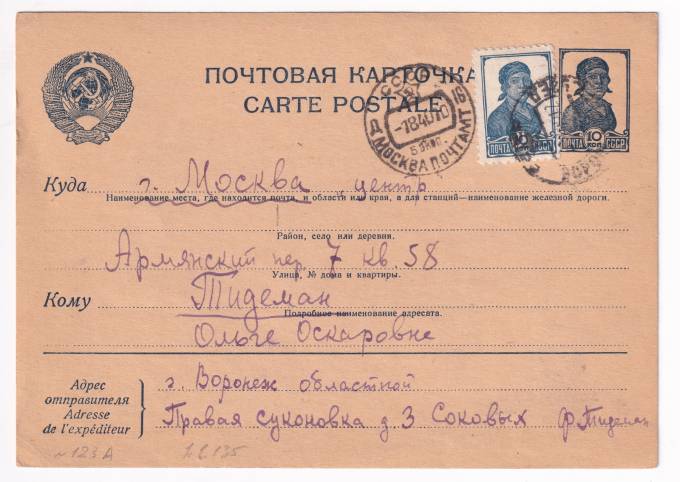 ПОЧТОВАЯ КАРТОЧКА
CARTE POSTALE
СССР
-7 8 40 10
МОСКВА ПОЧТАМТ
ПОЧТА СССР
10 КОП
Куда г. Москва, центр
Наименование места, где находится почта, и области или края, а для станций—наименование железной дороги.
Район, село или деревня.
Армянский пер. 7 кв. 58
Улица, № дома и квартиры.
Кому Тидеман
Подробное наименование адресата.
Ольге Оскаровне
Адрес
отправителя
Adresse
de l'expéditeur
г. Воронеж областной
Правая суконовка д 3 Соковых Ф. Тидеман
~ 123 А